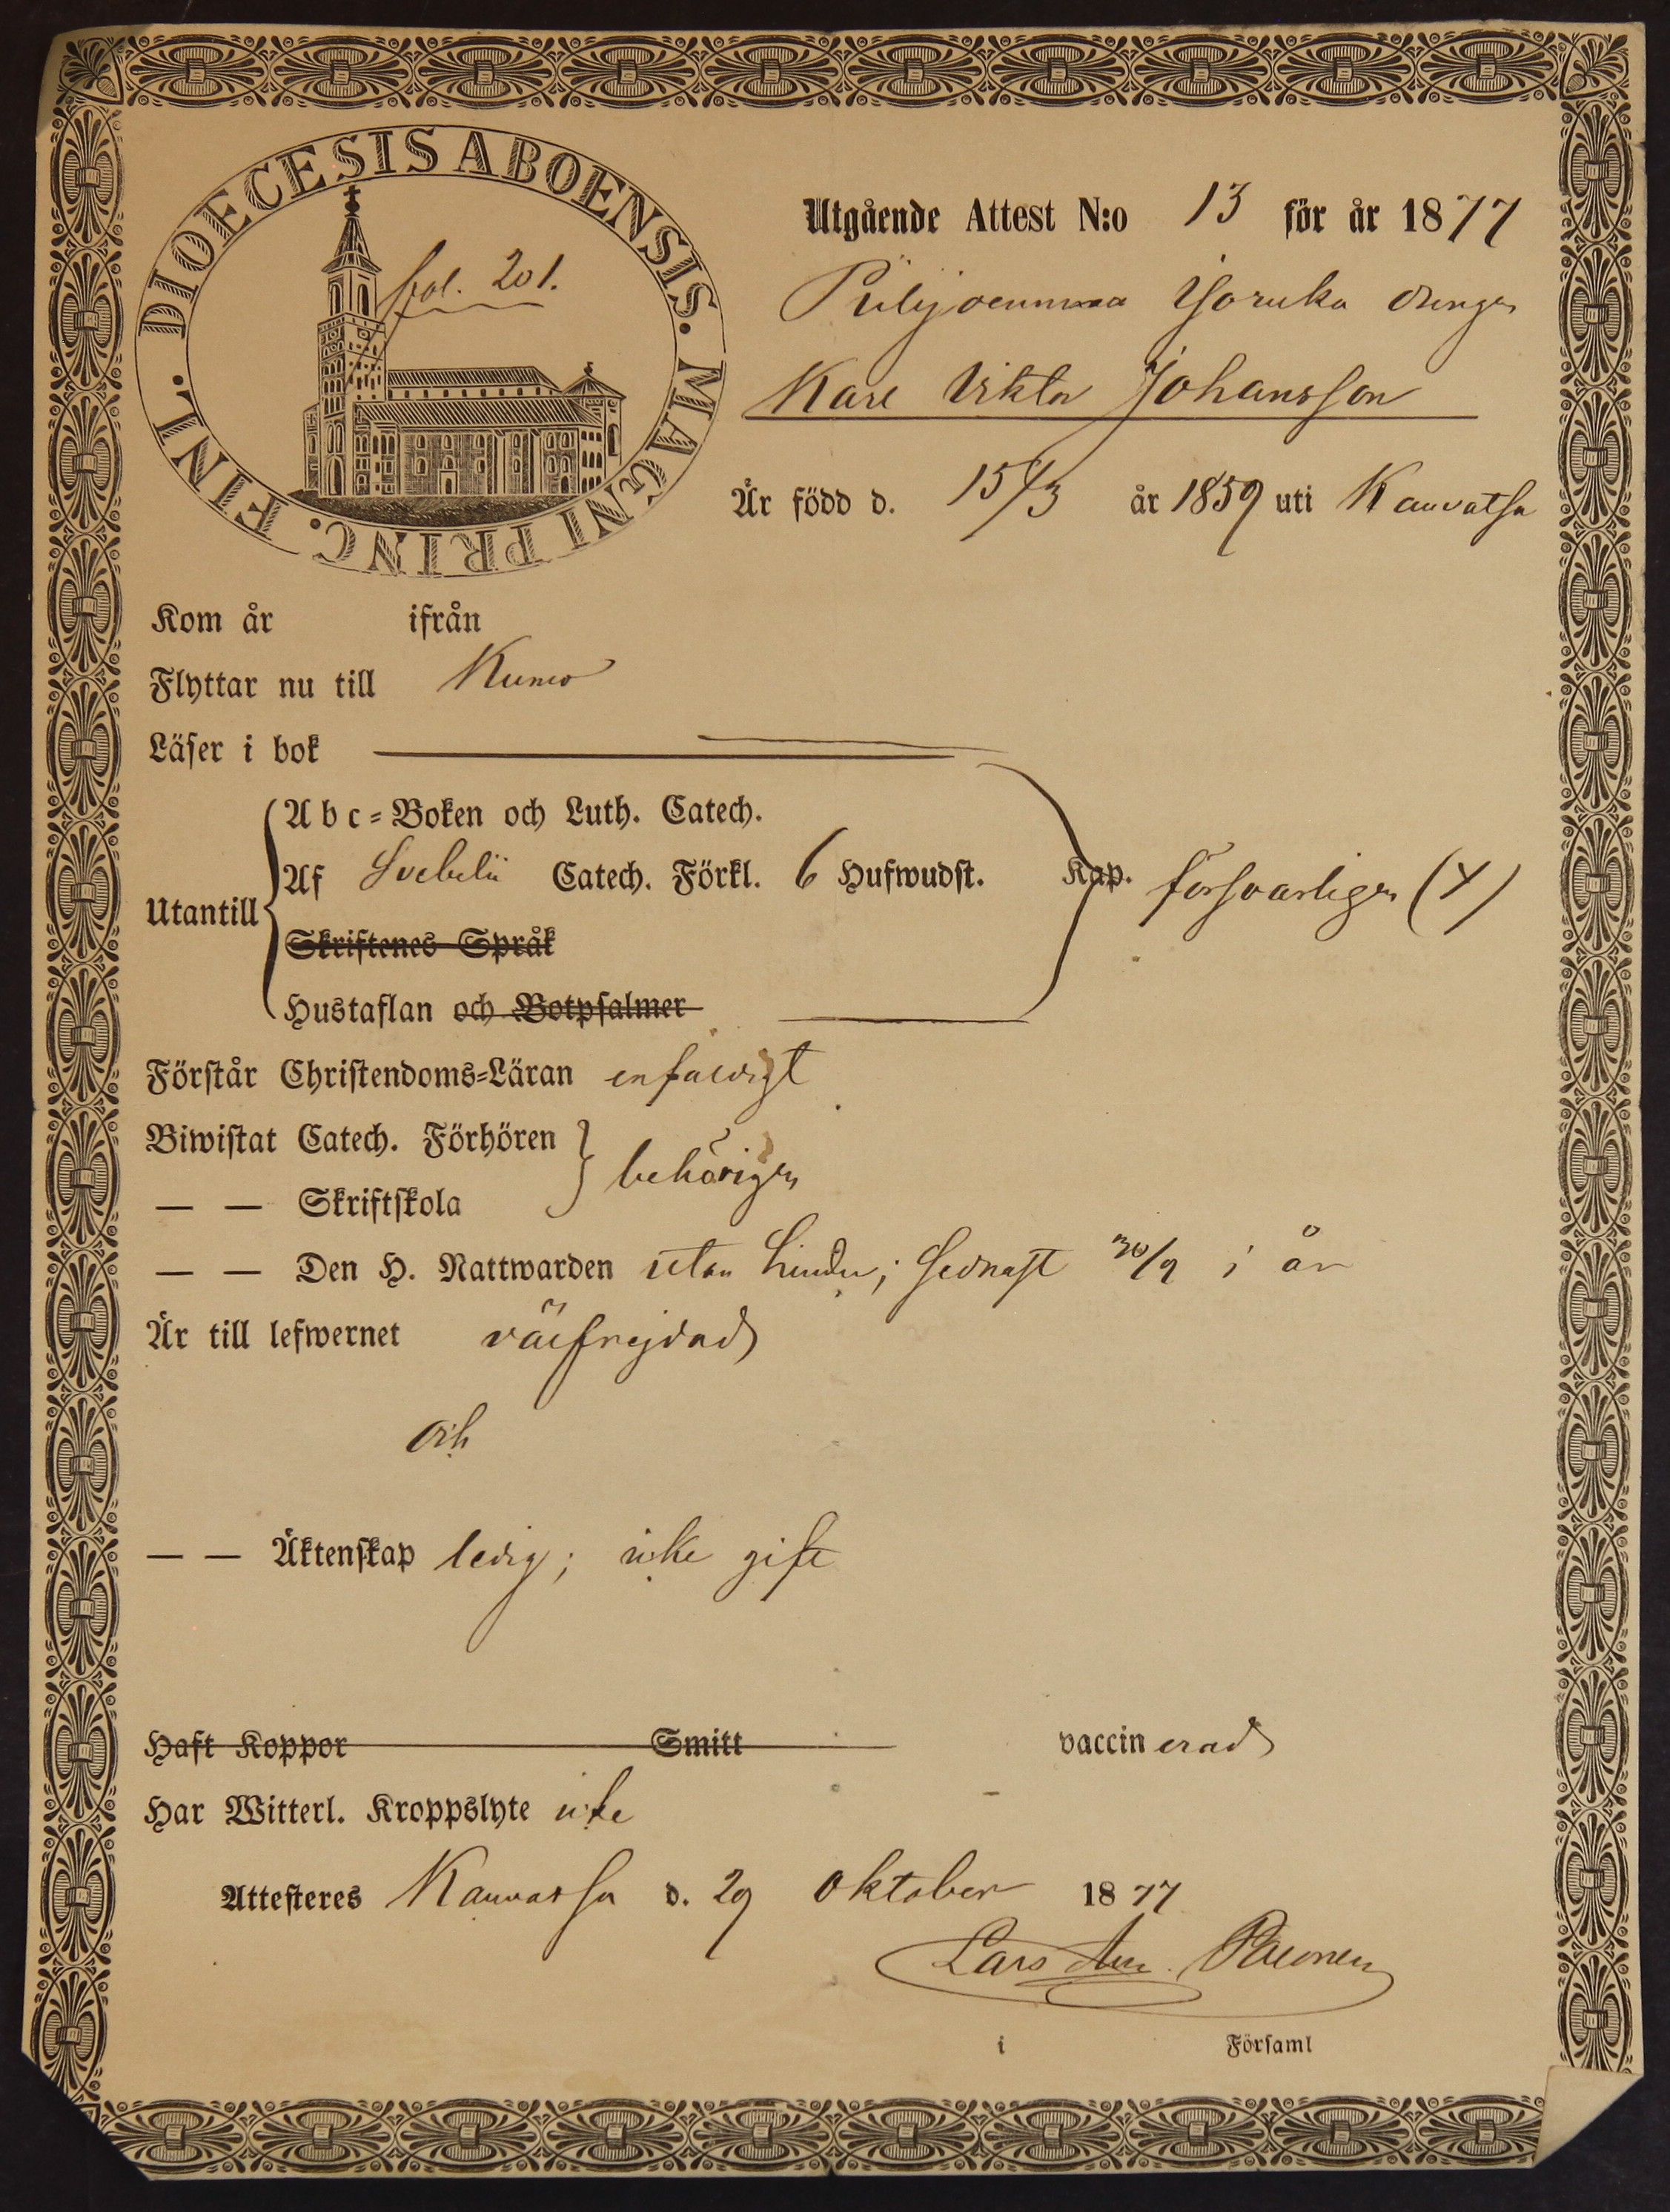 DIOECESIS ABOENSIS. MAGNI PRINC. FINL.
fol. 201.
Utgående Attest N:o 13 för år 1877
Isoruka drengen
Karl Viktor Johansson
Är född d. 15/3 år 1859 uti Kauvatsa
Kom år ifrån
Flyttar nu till Kumo
Läser i bok
Utantill
Abc-Boken och Luth. Catech.
Af Svebelii Catech. Förkl. 6 Hufwudst. Kap. försvarligen (4)
Skriftenes Språk
Hustaflan och Botpsalmer
Förstår Christendoms-Läran enfaldigt
Biwistat Catech. Förhören
— — Skriftskola
behörigen
— — Den H. Nattwarden utan hinder; sednast 30/9 i år
Är till lefwernet välfrejdad
och
— — Äktenskap ledig; icke gift
Haft Koppor Smitt vaccinerad
Har Witterl. Kroppslyte icke
Attesteres Kauvatsa d. 29 oktober 1877
Lars
i Församl